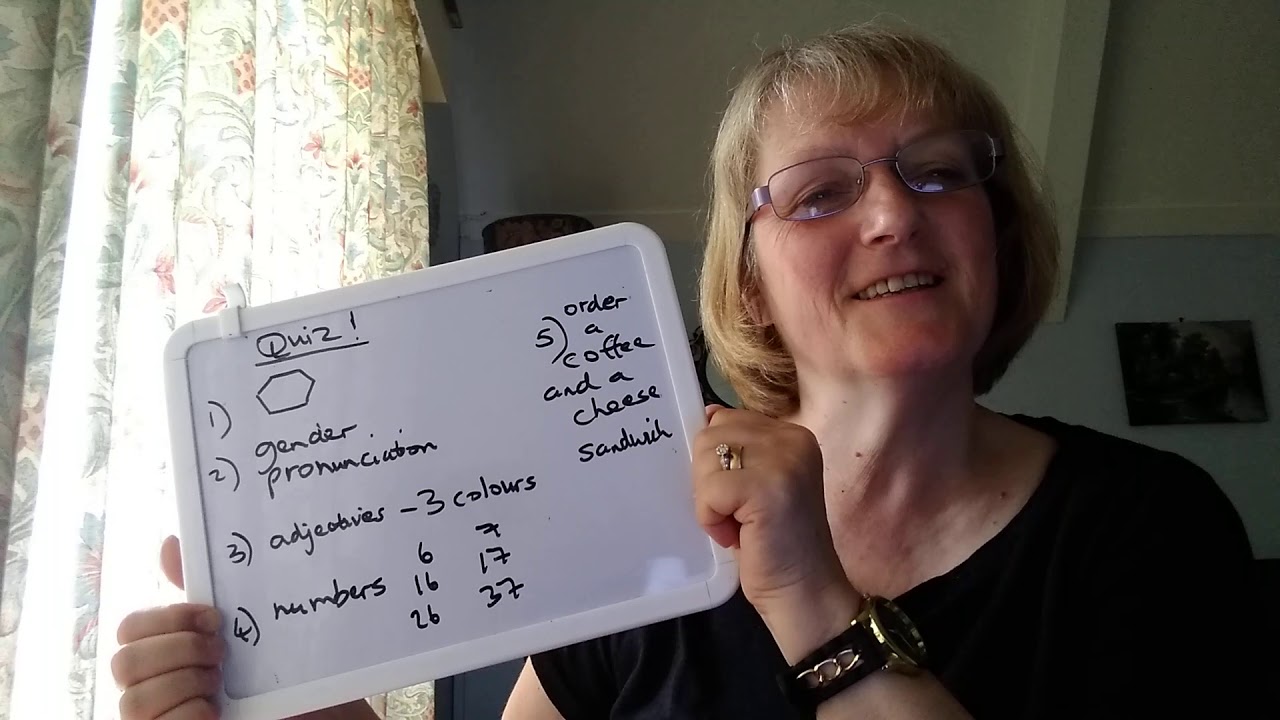 Quiz!
1)
2) gender
pronunciation
3) adjectives - 3 colours
4) numbers 6 7
16 17
26 37
5) order
a
coffee
and a
cheese
sandwich